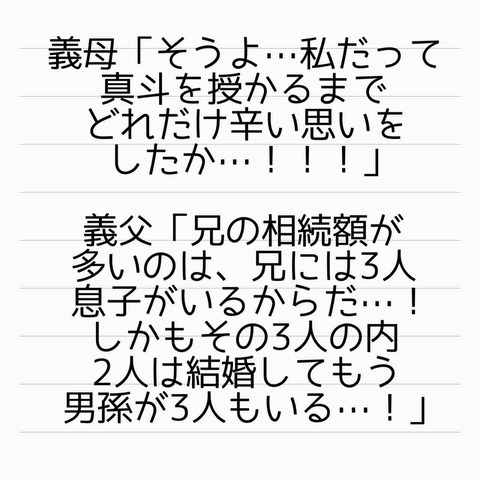 義母「そうよ…私だって
真斗を授かるまで
どれだけ辛い思いを
したか…！！！」
義父「兄の相続額が
多いのは、兄には3人
息子がいるからだ…！
しかもその3人の内
2人は結婚してもう
男孫が3人もいる…！」